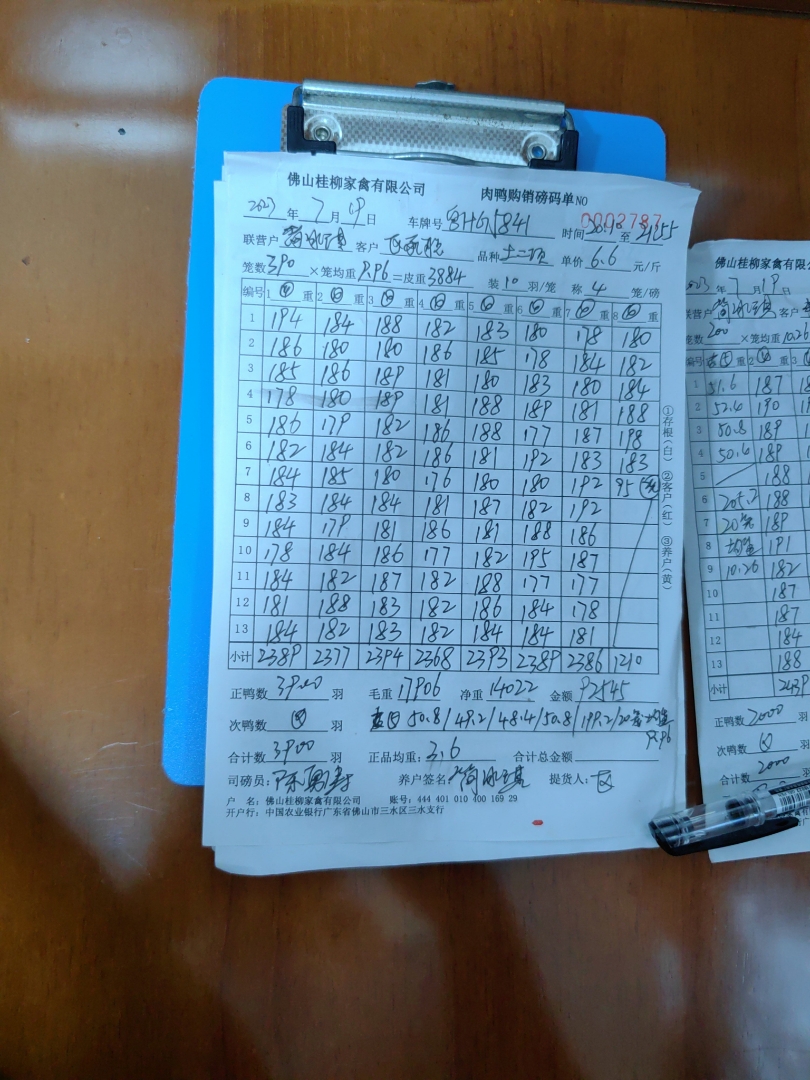 佛山桂柳家禽有限公司 肉鸭购销磅码单NO 0002787
2023年7月19日 车牌号 HG5841 时间 至 21:55
联营户 客户 品种 土二 单价6.6元/斤
笼数390×笼均重9.96=皮重3884 装10羽/笼 称4笼/磅
编号 1 重 2 重 3 重 4 重 5 重 6 重 7 重 8 重
1 194 184 188 182 183 180 178 180
2 186 180 180 186 185 178 184 182
3 185 186 189 181 180 183 180 184
4 178 180 189 181 188 189 181 188
5 186 179 182 186 188 177 187 198
6 182 184 182 186 181 192 183 183
7 184 185 180 176 180 180 192 95
8 183 184 184 181 187 182 192
9 184 179 181 186 181 188 186
10 178 184 186 177 182 195 187
11 184 182 187 182 188 177 177
12 181 188 183 182 186 184 178
13 184 182 183 182 184 184 181
小计 2389 2377 2394 2368 2393 2389 2386 1210
正鸭数3900羽 毛重17906 净重14022 金额92545
次鸭数 羽 50.8/49.2/48.4/50.8/199.2/20笼 9.96
合计数3900羽 正品均重:3.6 合计总金额
司磅员: 养户签名: 提货人:
户 名:佛山桂柳家禽有限公司 账号:444 401 010 400 169 29
开户行:中国农业银行广东省佛山市三水区三水支行
①存根(白) ②客户(红) ③养户(黄)
佛山桂柳家禽有限公司
2023年7月19日
联营户 客户
笼数200×笼均重10.26
编号 重 2 重 3
1 51.6 187
2 52.4 190
3 50.8 189
4 50.4 189
5 188
6 205.2 188
7 20笼 189
8 均重 191
9 10.26 182
10 187
11 187
12 184
13 188
小计
正鸭数2000羽
次鸭数 羽
合计数2000